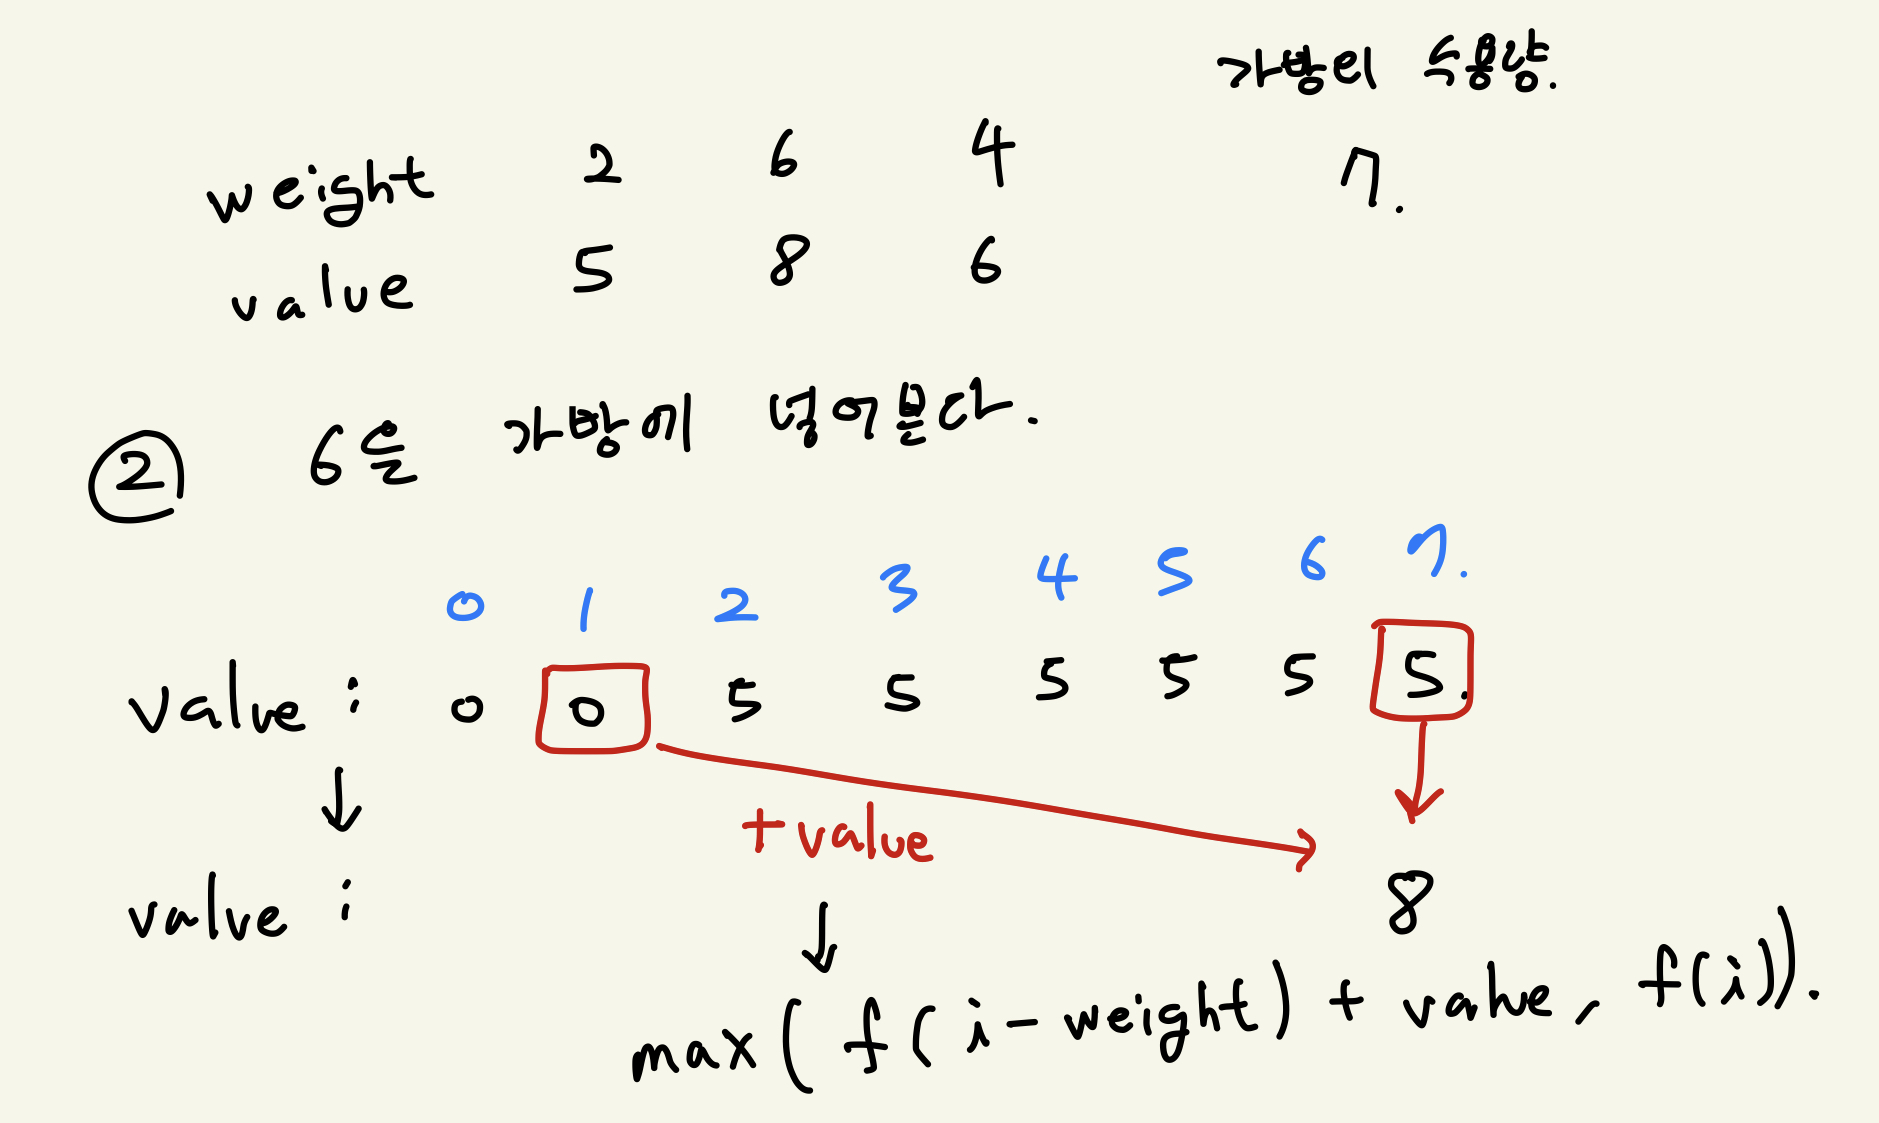 가방의 수용량.
weight 2 6 4 7.
value 5 8 6
② 6을 가방에 넣어본다.
0 1 2 3 4 5 6 7.
value : 0 0 5 5 5 5 5 5.
↓
+value
value : 8
↓
max ( f ( i - weight ) + value, f(i)).